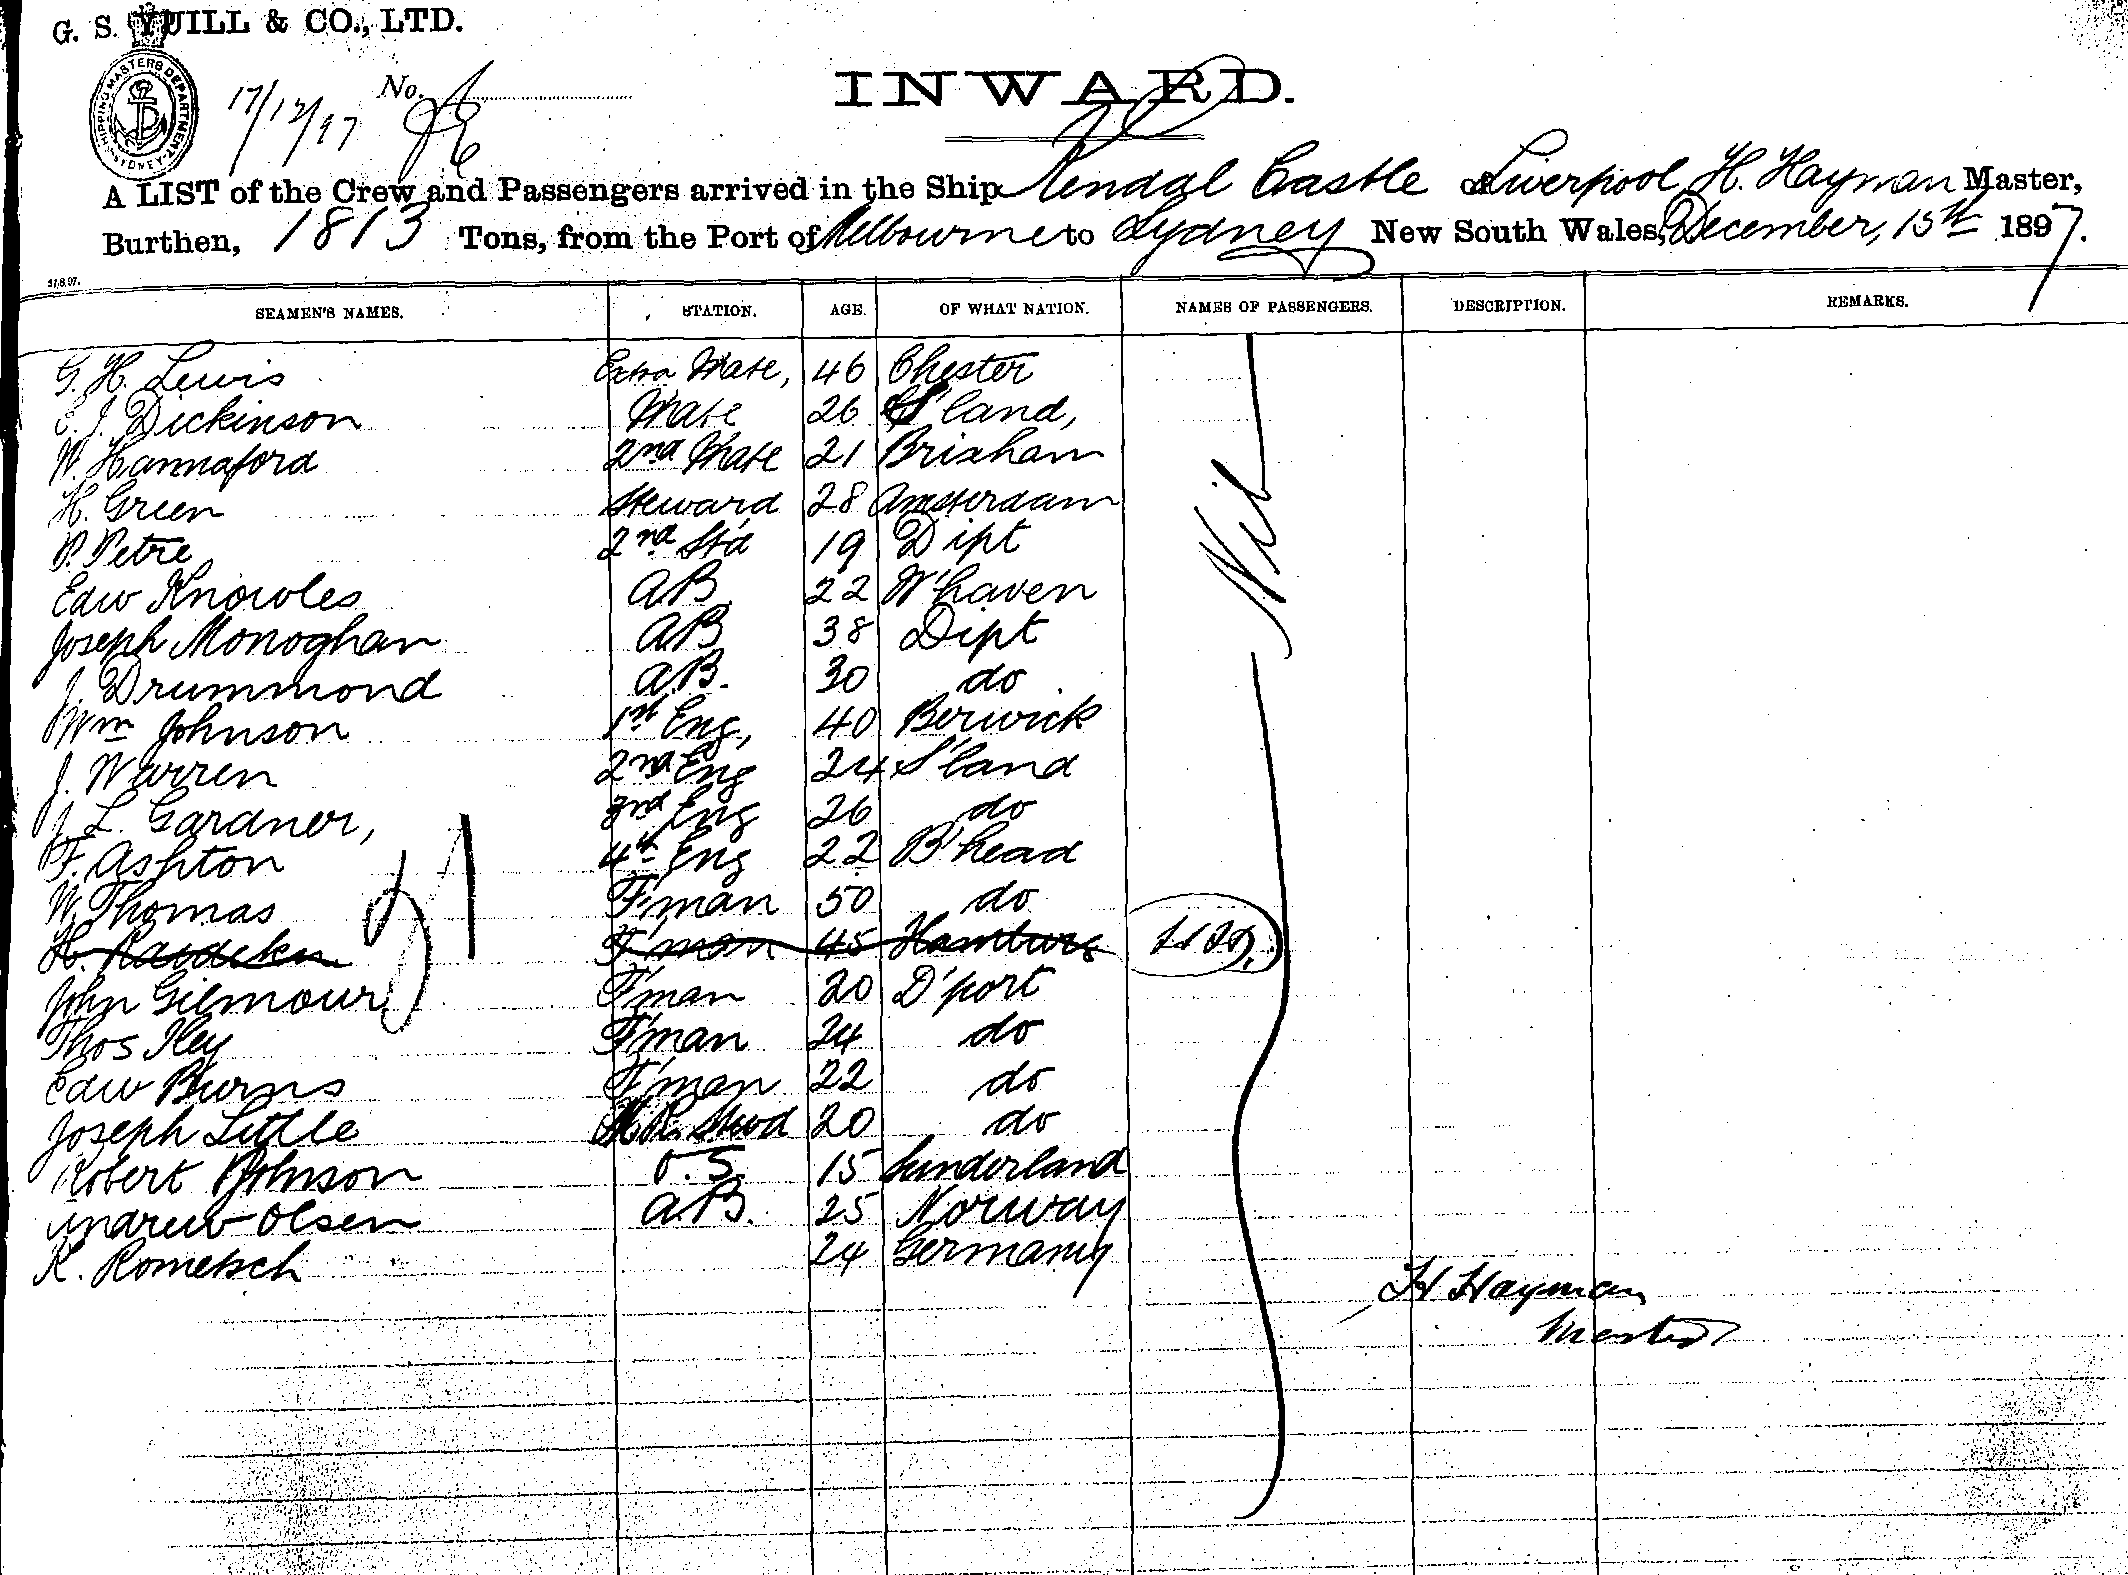 G. S. YUILL & CO., LTD.
SHIPPING MASTERS DEPARTMENT SYDNEY
17/12/97 No.
INWARD.
A LIST of the Crew and Passengers arrived in the Ship Kendal Castle of Liverpool, H. Hayman Master,
Burthen, 1813 Tons, from the Port of Melbourne to Sydney New South Wales, December, 15th 1897.
31.8.97.
SEAMEN'S NAMES. STATION. AGE. OF WHAT NATION. NAMES OF PASSENGERS. DESCRIPTION. REMARKS.
G. H. Lewis Extra Mate, 46 Chester
E. J. Dickinson Mate 26 S'land,
W. Hannaford 2nd Mate 21 Brixham
H. Green Steward 28 Amsterdam
P. Petre 2nd Std 19 Dipt
Nil
Edw Knowles AB 22 W'haven
Joseph Monoghan AB 38 Dipt
J. Drummond A.B. 30 do
Wm Johnson 1st Eng, 40 Berwick
J. Warren 2nd Eng 24 S'land
J. L. Gardner, 3rd Eng 26 do
F. Ashton 4th Eng 22 B'head
W. Thomas F'man 50 do
21
H. F'man 45 Hamburg
John Gilmour F'man 20 D'port
Thos Iley F'man 24 do
Edw Burns F'man 22 do
Joseph Little M.R. Stwd 20 do
Robert Johnson O.S. 15 Sunderland
Andrew Olsen A.B. 25 Norway
K. Rometsch 24 Germany
H Hayman
Master